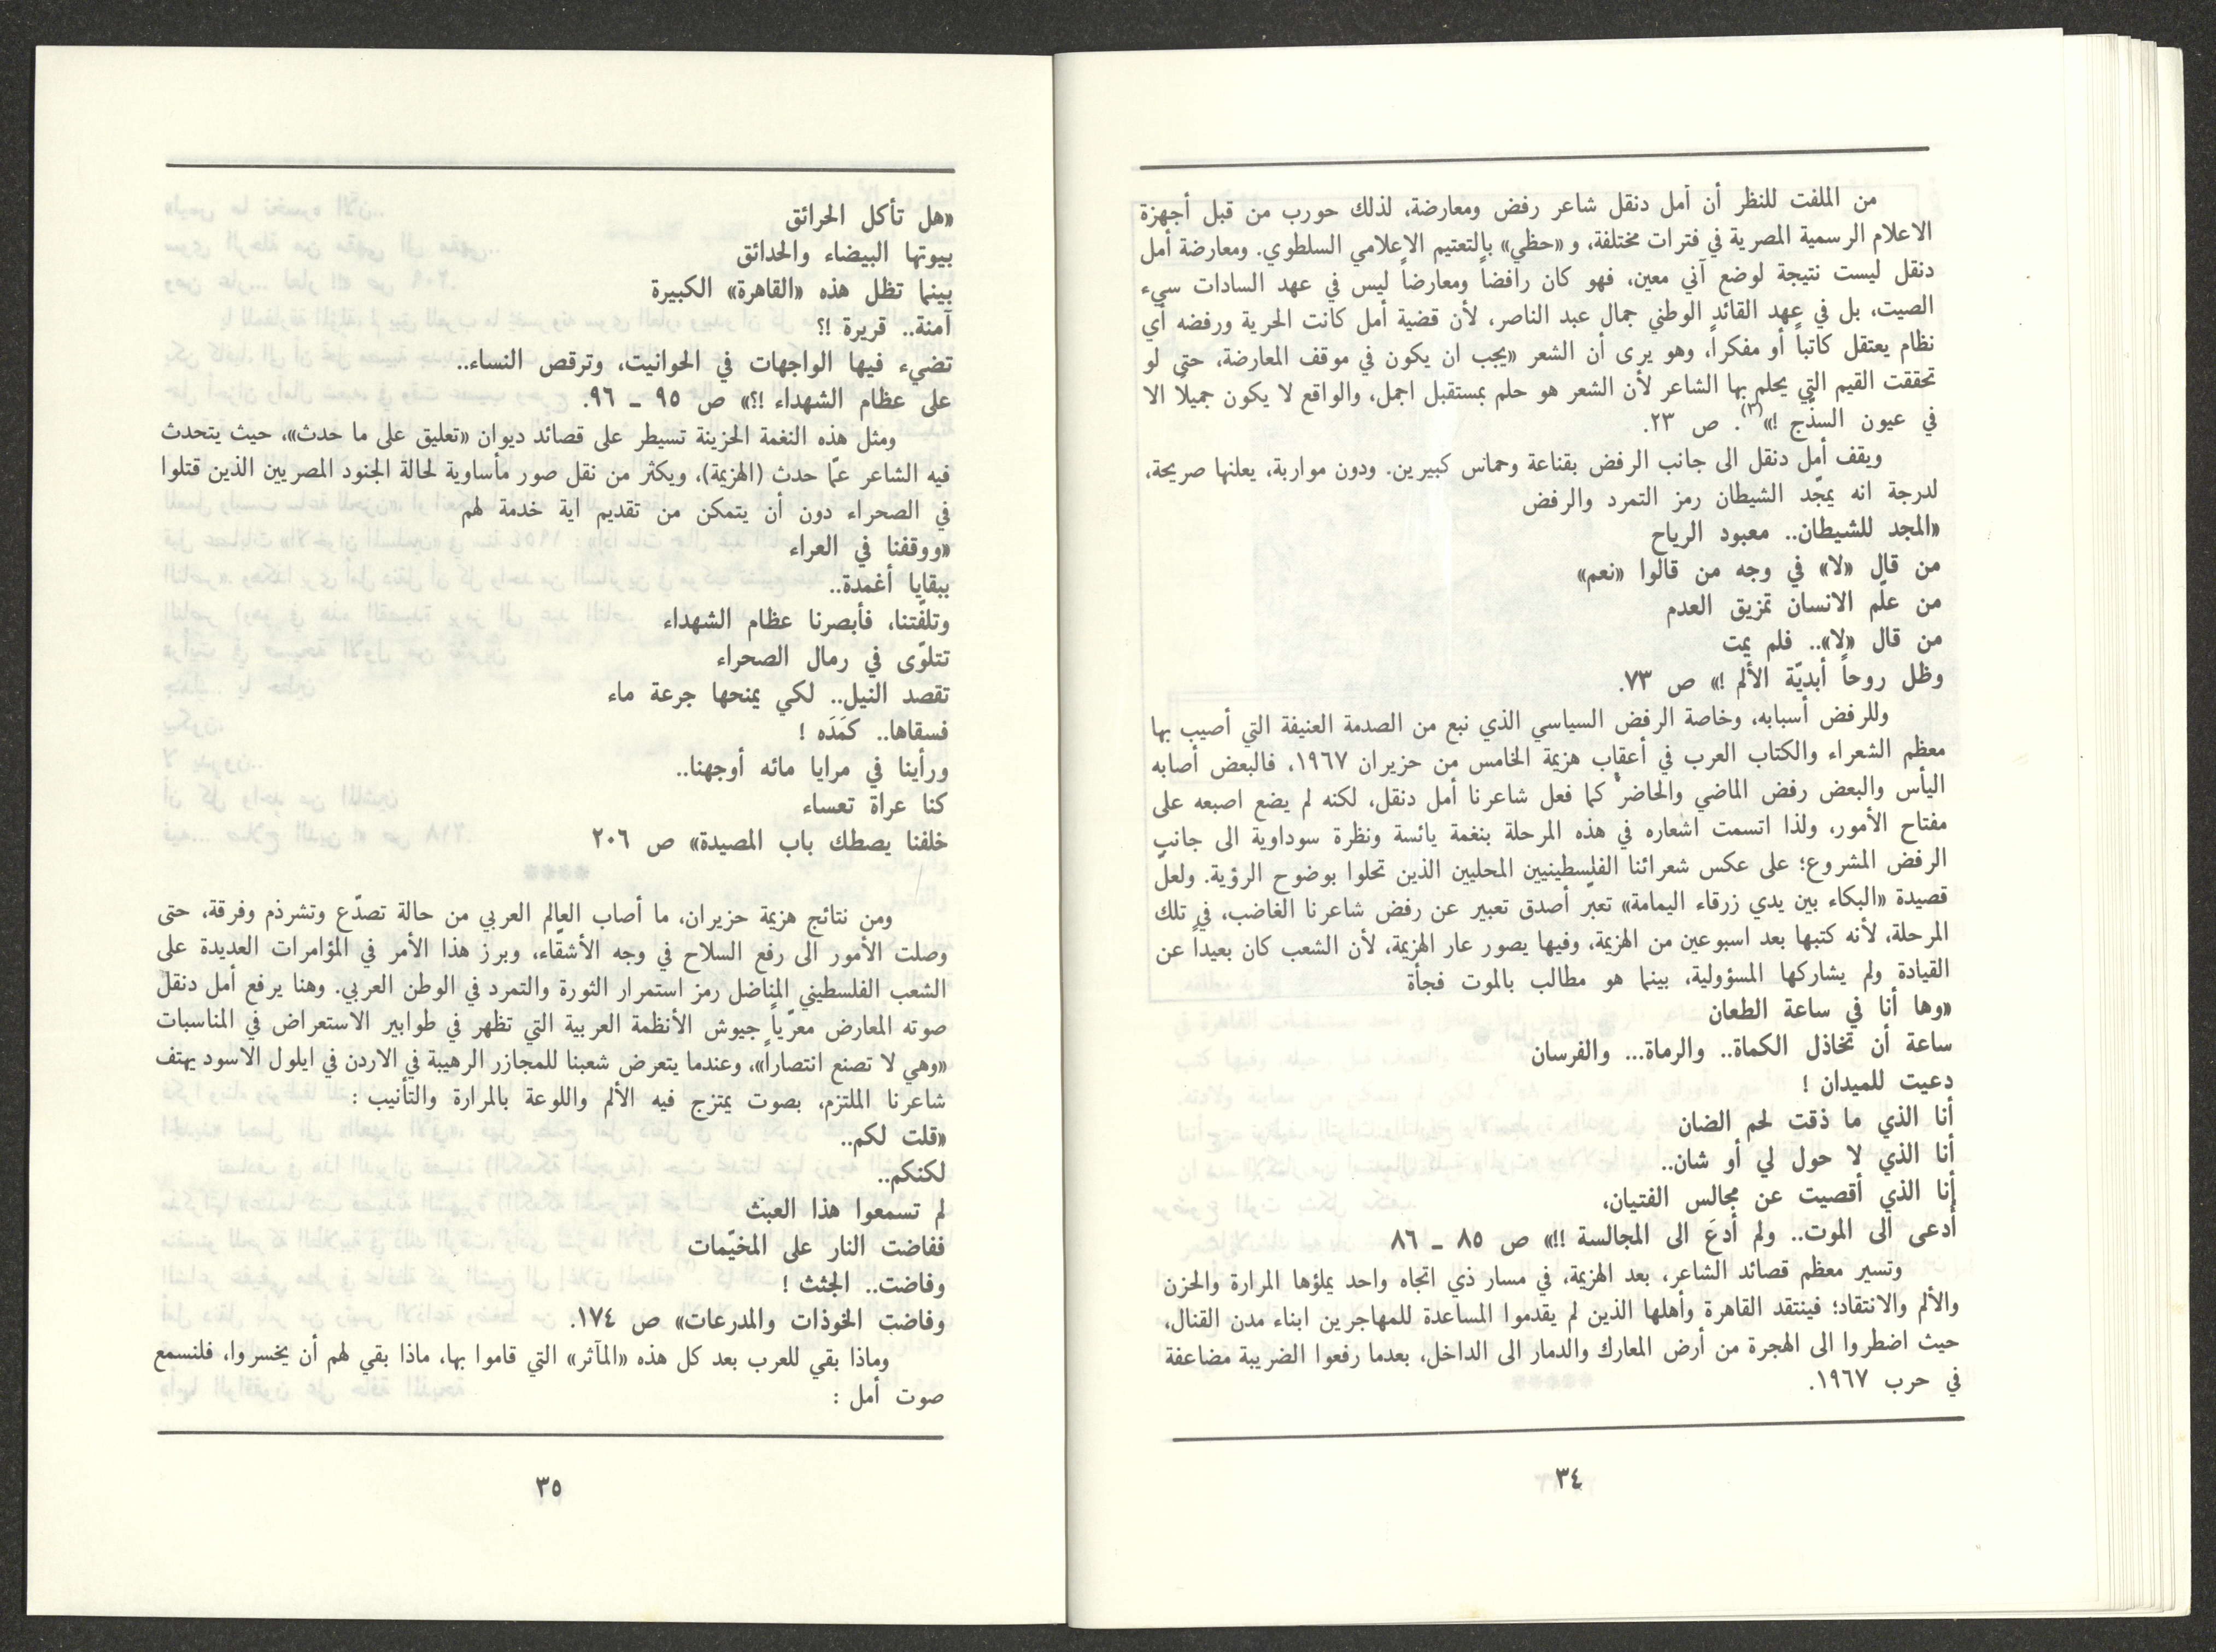 من الملفت للنظر أن أمل دنقل شاعر رفض ومعارضة، لذلك حورب من قبل أجهزة
الاعلام الرسمية المصرية في فترات مختلفة، و «حظي» بالتعتيم الاعلامي السلطوي. ومعارضة أمل
دنقل ليست نتيجة لوضع آني معين، فهو كان رافضاً ومعارضاً ليس في عهد السادات سيء
الصيت، بل في عهد القائد الوطني جمال عبد الناصر، لأن قضية أمل كانت الحرية ورفضه أي
نظام يعتقل كاتباً أو مفكراً، وهو يرى أن الشعر «يجب ان يكون في موقف المعارضة، حتى لو
تحققت القيم التي يحلم بها الشاعر لأن الشعر هو حلم بمستقبل اجمل، والواقع لا يكون جميلاً الا
في عيون السذّج !»(٣). ص ٢٣.
ويقف أمل دنقل الى جانب الرفض بقناعة وحماس كبيرين. ودون مواربة، يعلنها صريحة،
لدرجة انه يمجّد الشيطان رمز التمرد والرفض
«المجد للشيطان.. معبود الرياح
من قال «لا» في وجه من قالوا «نعم»
من علّم الانسان تمزيق العدم
من قال «لا».. فلم يمت
وظل روحاً أبديّة الألم !» ص ٧٣.
وللرفض أسبابه، وخاصة الرفض السياسي الذي نبع من الصدمة العنيفة التي أصيب بها
معظم الشعراء والكتاب العرب في أعقاب هزيمة الخامس من حزيران ١٩٦٧، فالبعض أصابه
اليأس والبعض رفض الماضي والحاضر كما فعل شاعرنا أمل دنقل، لكنه لم يضع اصبعه على
مفتاح الأمور، ولذا اتسمت اشعاره في هذه المرحلة بنغمة يائسة ونظرة سوداوية الى جانب
الرفض المشروع؛ على عكس شعرائنا الفلسطينيين المحليين الذين تحلوا بوضوح الرؤية. ولعل
قصيدة «البكاء بين يدي زرقاء اليمامة» تعبّر أصدق تعبير عن رفض شاعرنا الغاضب، في تلك
المرحلة، لأنه كتبها بعد اسبوعين من الهزيمة، وفيها يصور عار الهزيمة، لأن الشعب كان بعيداً عن
القيادة ولم يشاركها المسؤولية، بينما هو مطالب بالموت فجأة
«وها أنا في ساعة الطعان
ساعة أن تخاذل الكماة.. والرماة... والفرسان
دعيت للميدان !
أنا الذي ما ذقت لحم الضان
أنا الذي لا حول لي أو شان..
أنا الذي أقصيت عن مجالس الفتيان،
أُدعى الى الموت.. ولم أُدعَ الى المجالسة !!» ص ٨٥ ــ ٨٦
وتسير معظم قصائد الشاعر، بعد الهزيمة، في مسار ذي اتجاه واحد يملؤها المرارة والحزن
والألم والانتقاد؛ فينتقد القاهرة وأهلها الذين لم يقدموا المساعدة للمهاجرين ابناء مدن القنال،
حيث اضطروا الى الهجرة من أرض المعارك والدمار الى الداخل، بعدما رفعوا الضريبة مضاعفة
في حرب ١٩٦٧.
٣٤
«هل تأكل الحرائق
بيوتها البيضاء والحدائق
بينما تظل هذه «القاهرة» الكبيرة
آمنة.. قريرة !؟
تضيء فيها الواجهات في الحوانيت، وترقص النساء..
على عظام الشهداء !؟» ص ٩٥ ــ ٩٦.
ومثل هذه النغمة الحزينة تسيطر على قصائد ديوان «تعليق على ما حدث»، حيث يتحدث
فيه الشاعر عمّا حدث (الهزيمة)، ويكثر من نقل صور مأساوية لحالة الجنود المصريين الذين قتلوا
في الصحراء دون أن يتمكن من تقديم اية خدمة لهم
«ووقفنا في العراء
ببقايا أغمدة..
وتلفّتنا، فأبصرنا عظام الشهداء
تتلوّى في رمال الصحراء
تقصد النيل.. لكي يمنحها جرعة ماء
فسقاها.. كَمَدَه !
ورأينا في مرايا مائه أوجهنا..
كنا عراة تعساء
خلفنا يصطك باب المصيدة» ص ٢٠٦
ومن نتائج هزيمة حزيران، ما أصاب العالم العربي من حالة تصدّع وتشرذم وفرقة، حتى
وصلت الأمور الى رفع السلاح في وجه الأشقّاء، وبرز هذا الأمر في المؤامرات العديدة على
الشعب الفلسطيني المناضل رمز استمرار الثورة والتمرد في الوطن العربي. وهنا يرفع أمل دنقل
صوته المعارض معرّياً جيوش الأنظمة العربية التي تظهر في طوابير الاستعراض في المناسبات
«وهي لا تصنع انتصاراً»، وعندما يتعرض شعبنا للمجازر الرهيبة في الاردن في ايلول الاسود يهتف
شاعرنا الملتزم، بصوت يمتزج فيه الألم واللوعة بالمرارة والتأنيب :
«قلت لكم..
لكنكم..
لم تسمعوا هذا العبث
ففاضت النار على المخيّمات
وفاضت.. الجثث !
وفاضت الخوذات والمدرعات» ص ١٧٤.
وماذا بقي للعرب بعد كل هذه «المآثر» التي قاموا بها، ماذا بقي لهم أن يخسروا، فلنسمع
صوت أمل :
٣٥